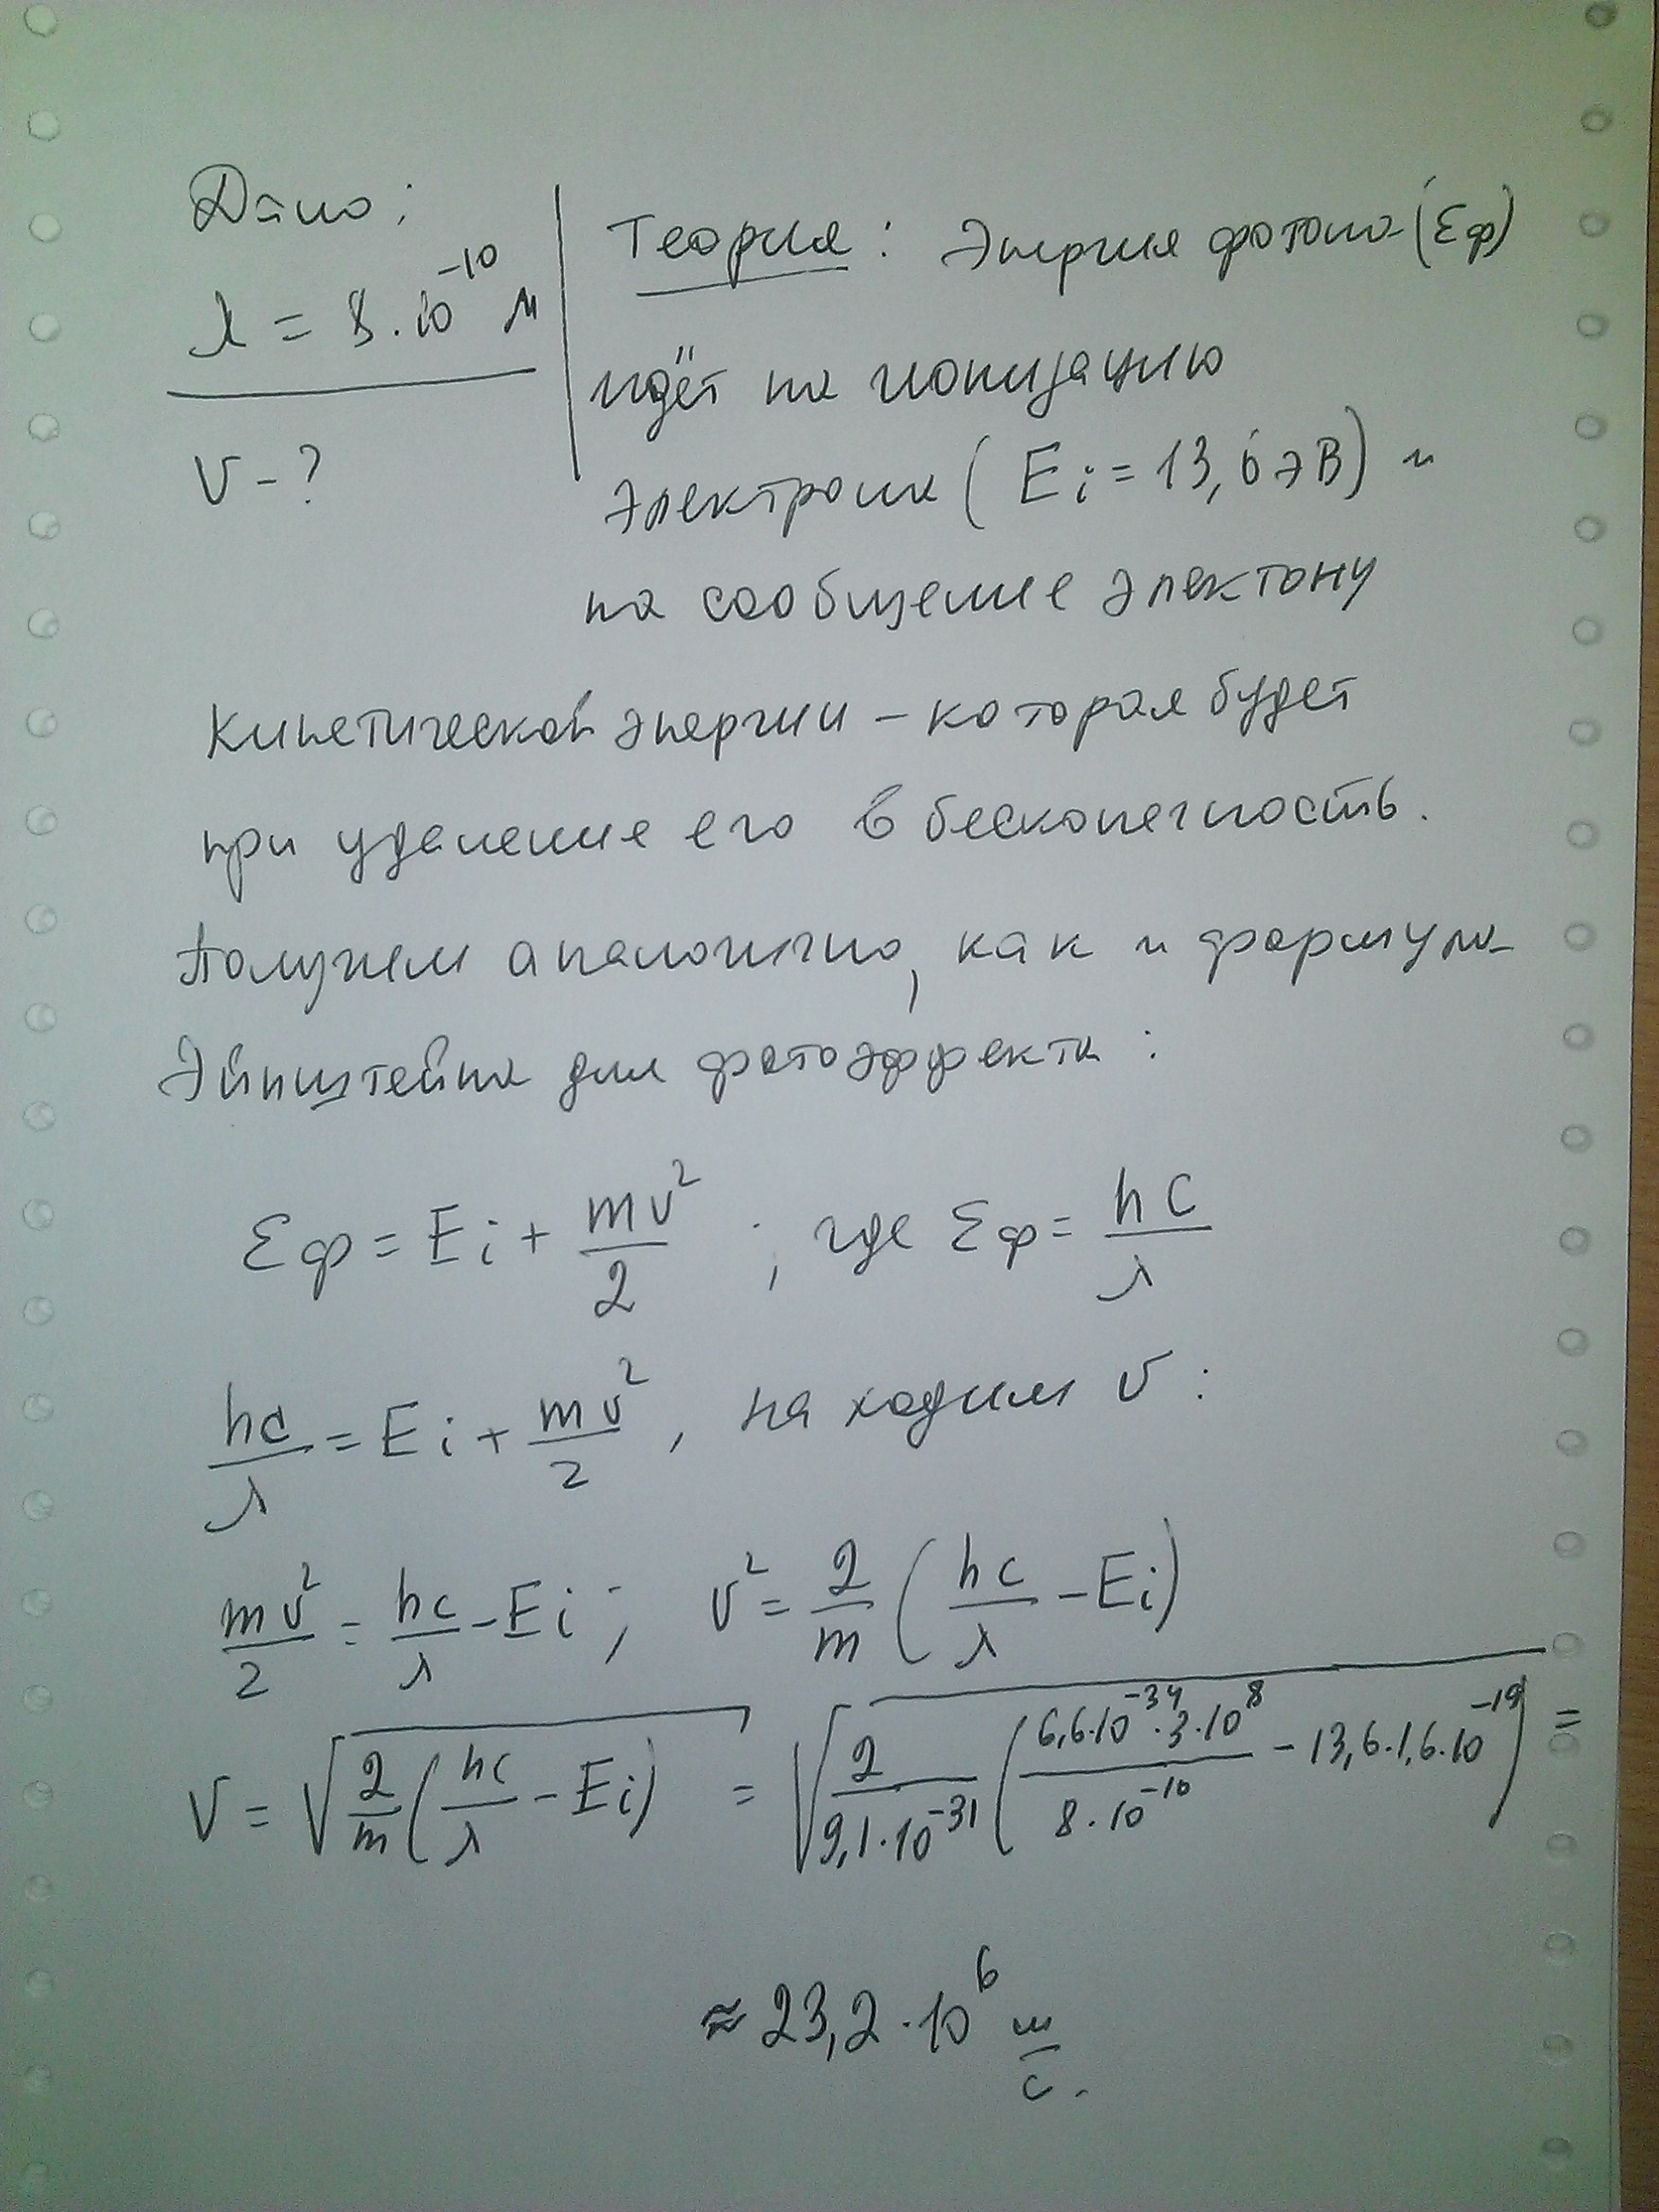 Дано:
λ = 8·10⁻¹⁰ м
V - ?
Теория: Энергия фотона (Eф)
идёт на ионизацию
электрона (Ei = 13,6 эВ) и
на сообщение электону
кинетической энергии – которая будет
при удаление его в бесконечность.
Получим аналогично, как и формула
Эйнштейна для фотоэффекта:
Eф = Ei + mv²/2 ; где Eф = hc/λ
hc/λ = Ei + mv²/2, находим V:
mv²/2 = hc/λ - Ei; v² = 2/m (hc/λ - Ei)
V = √(2/m (hc/λ - Ei)) = √(2/9,1·10⁻³¹ (6,6·10⁻³⁴·3·10⁸/8·10⁻¹⁰ - 13,6·1,6·10⁻¹⁹)) =
≈ 23,2·10⁶ м/с.